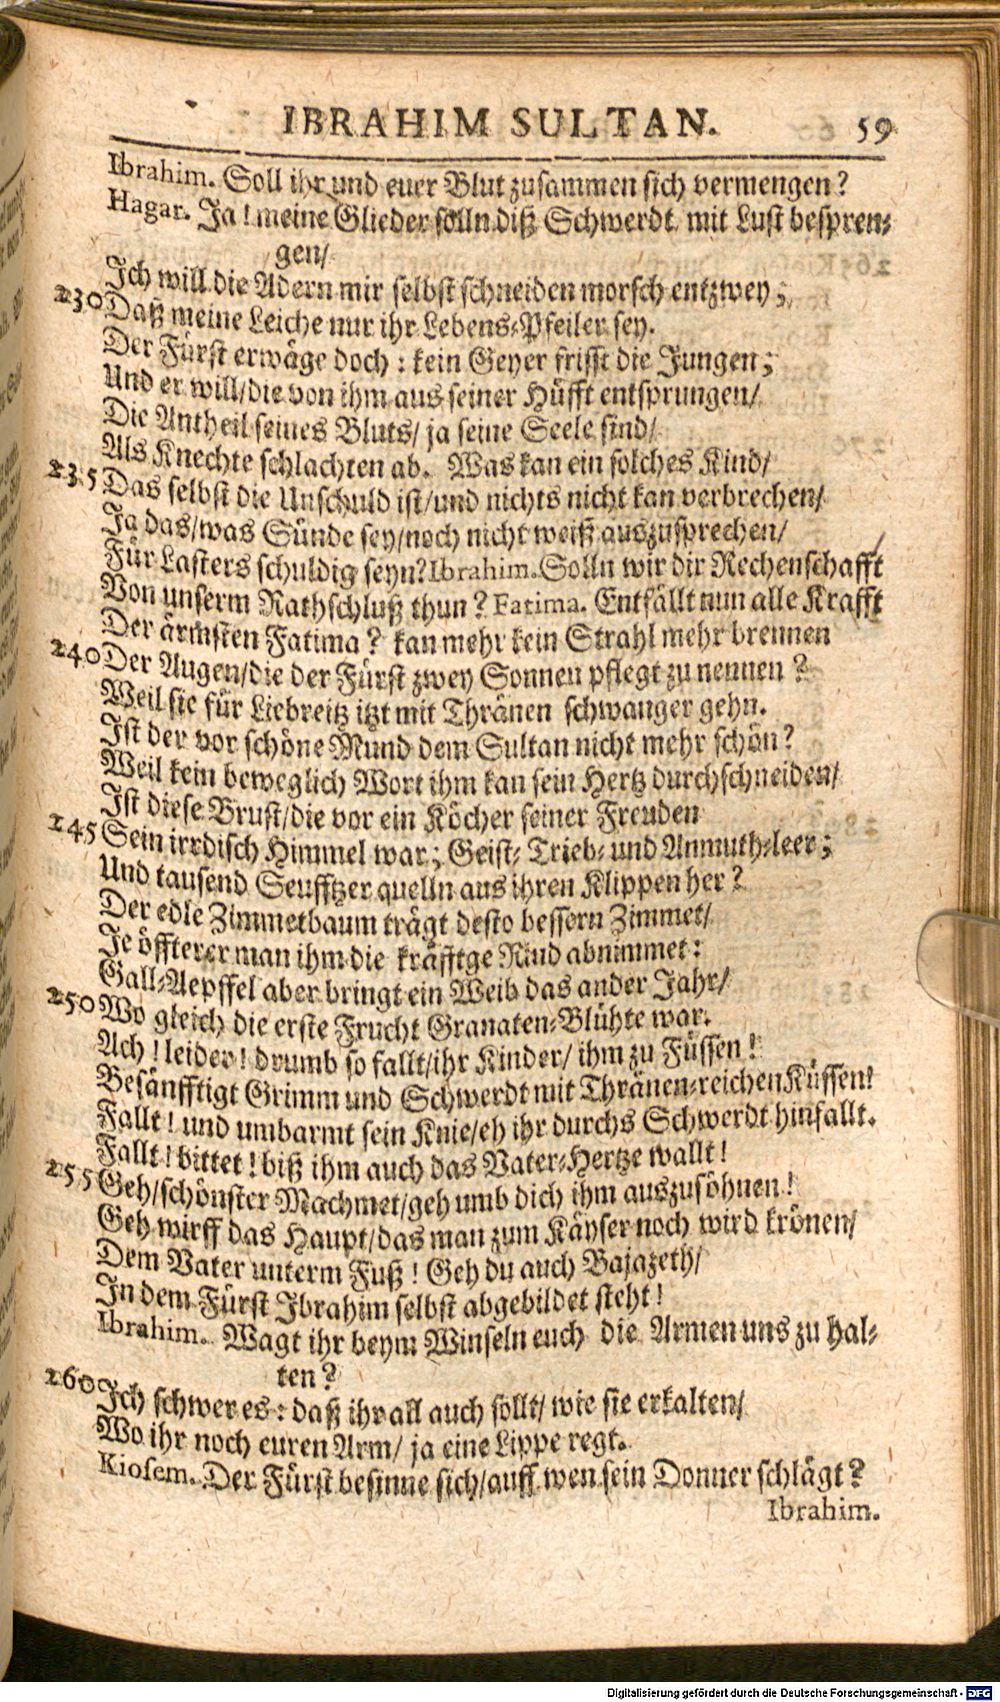 IBRAHIM SULTAN. 59
Ibrahim. Soll ihr und euer Blut zusammen sich vermengen?
Hagar. Ja! meine Glieder solln diß Schwerdt mit Lust bespren-
gen/
Ich will die Adern mir selbst schneiden morsch entzwey;
230 Daß meine Leiche nur ihr Lebens-Pfeiler sey.
Der Fürst erwäge doch: kein Geyer frisst die Jungen;
Und er will/die von ihm aus seiner Hüfft entsprungen/
Die Antheil seines Bluts/ ja seine Seele sind/
Als Knechte schlachten ab. Was kan ein solches Kind/
235 Das selbst die Unschuld ist/und nichts nicht kan verbrechen/
Ja das/was Sünde sey/noch nicht weiß auszusprechen/
Für Lasters schuldig seyn? Ibrahim. Solln wir dir Rechenschafft
Von unserm Rathschluß thun? Fatima. Entfällt nun alle Krafft
Der ärmsten Fatima? kan mehr kein Strahl mehr brennen
240 Der Augen/die der Fürst zwey Sonnen pflegt zu nennen?
Weil sie für Liebreitz itzt mit Thränen schwanger gehn.
Ist der vor schöne Mund dem Sultan nicht mehr schön?
Weil kein beweglich Wort ihm kan sein Hertz durchschneiden/
Ist diese Brust/die vor ein Köcher seiner Freuden
245 Sein irrdisch Himmel war; Geist- Trieb- und Anmuth-leer;
Und tausend Seufftzer quelln aus ihren Klippen her?
Der edle Zimmetbaum trägt desto bessern Zimmet/
Je öffterer man ihm die kräfftge Rind abnimmet:
Gall-Aepffel aber bringt ein Weib das ander Jahr/
250 Wo gleich die erste Frucht Granaten-Blühte war.
Ach! leider! drumb so fallt/ihr Kinder/ ihm zu Füssen!
Besänfftigt Grimm und Schwerdt mit Thränen-reichen Küssen!
Fallt! und umbarmt sein Knie/eh ihr durchs Schwerdt hinfallt.
Fallt! bittet! biß ihm auch das Vater-Hertze wallt!
255 Geh/schönster Machmet/geh umb dich ihm auszusöhnen!
Geh wirff das Haupt/das man zum Käyser noch wird krönen/
Dem Vater unterm Fuß! Geh du auch Bajazeth/
In dem Fürst Ibrahim selbst abgebildet steht!
Ibrahim. Wagt ihr beym Winseln euch die Armen uns zu hal-
ten?
260 Ich schwer es: daß ihr all auch sollt/ wie sie erkalten/
Wo ihr noch euren Arm/ ja eine Lippe regt.
Kiosem. Der Fürst besinne sich/auff wen sein Donner schlägt?
Ibrahim.
Digitalisierung gefördert durch die Deutsche Forschungsgemeinschaft - DFG